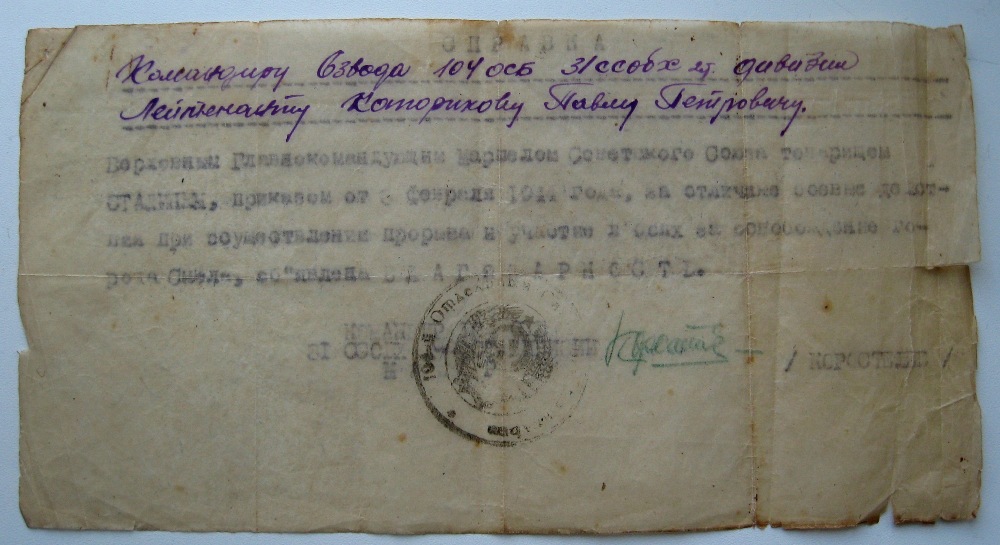 СПРАВКА
Командиру взвода 104 осб 31 ссобх ст. дивизии
Лейтенанту Капорихову Павлу Петровичу.
Верховным Главнокомандующим Маршалом Советского Союза товарищем
СТАЛИНЫМ, приказом от 3 февраля 1944 года, за отличные боевые дейст-
вия при осуществлении прорыва и участие в боях за освобождение го-
рода Смела, об"явлена БЛАГОДАРНОСТЬ.
31
/ КОРОСТЕЛЕВ /
104-й Отдельный